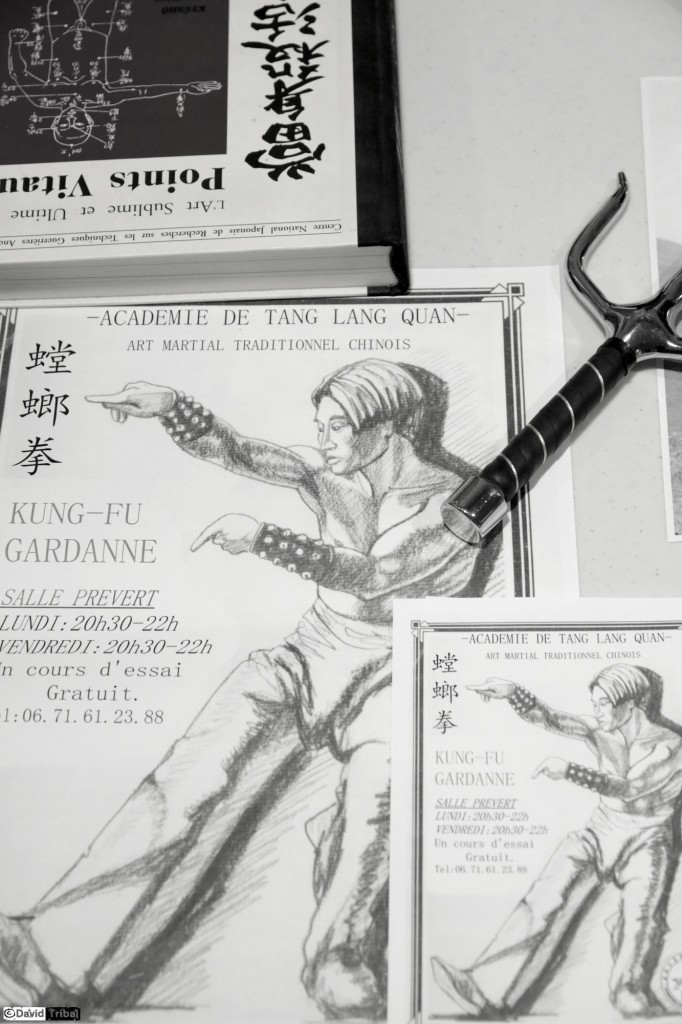 當身殺活
Points Vitau
L'Art Sublime et Ultime
Centre National Japonais de Recherches sur les Techniques Guerrières Anc
-ACADEMIE DE TANG LANG QUAN-
ART MARTIAL TRADITIONNEL CHINOIS
螳
螂
拳
KUNG-FU
GARDANNE
SALLE PREVERT
LUNDI:20h30-22h
VENDREDI:20h30-22h
n cours d'essai
Gratuit.
l:06.71.61.23.88
-ACADEMIE DE TANG LANG QUAN-
ART MARTIAL TRADITIONNEL CHINOIS
螳
螂
拳
KUNG-FU
GARDANNE
SALLE PREVERT
LUNDI:20h30-22h
VENDREDI:20h30-22h
Un cours d'essai
Gratuit.
Tel:06.71.61.23.88
©David Tribal